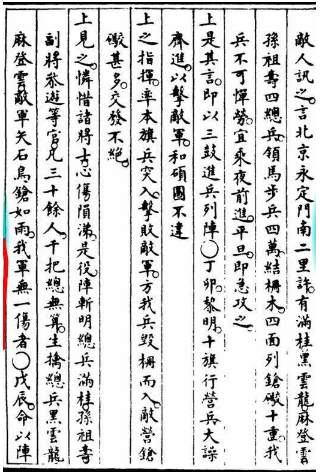 敵人訊之言北京永定門南二里許有滿桂黑雲龍麻登雲
孫祖壽四總兵領馬步兵四萬結柵木四面列鎗礮十重我
兵不可憚勞宜乘夜前進平旦即急攻之
上是其言即以三鼓進兵列陣○丁卯黎明十旗行營兵大譟
齊進以擊敵軍和碩圖不違
上之指揮率本旗兵突入擊敗敵軍方我兵毀柵而入敵營鎗
礮甚多交發不絕
上見之憐惜諸將士心傷隕涕是役陣斬明總兵滿桂孫祖壽
副將參遊等官凡三十餘人千把總無算生擒總兵黑雲龍
麻登雲敵軍矢石鳥鎗如雨我軍無一傷者○戊辰命以陣